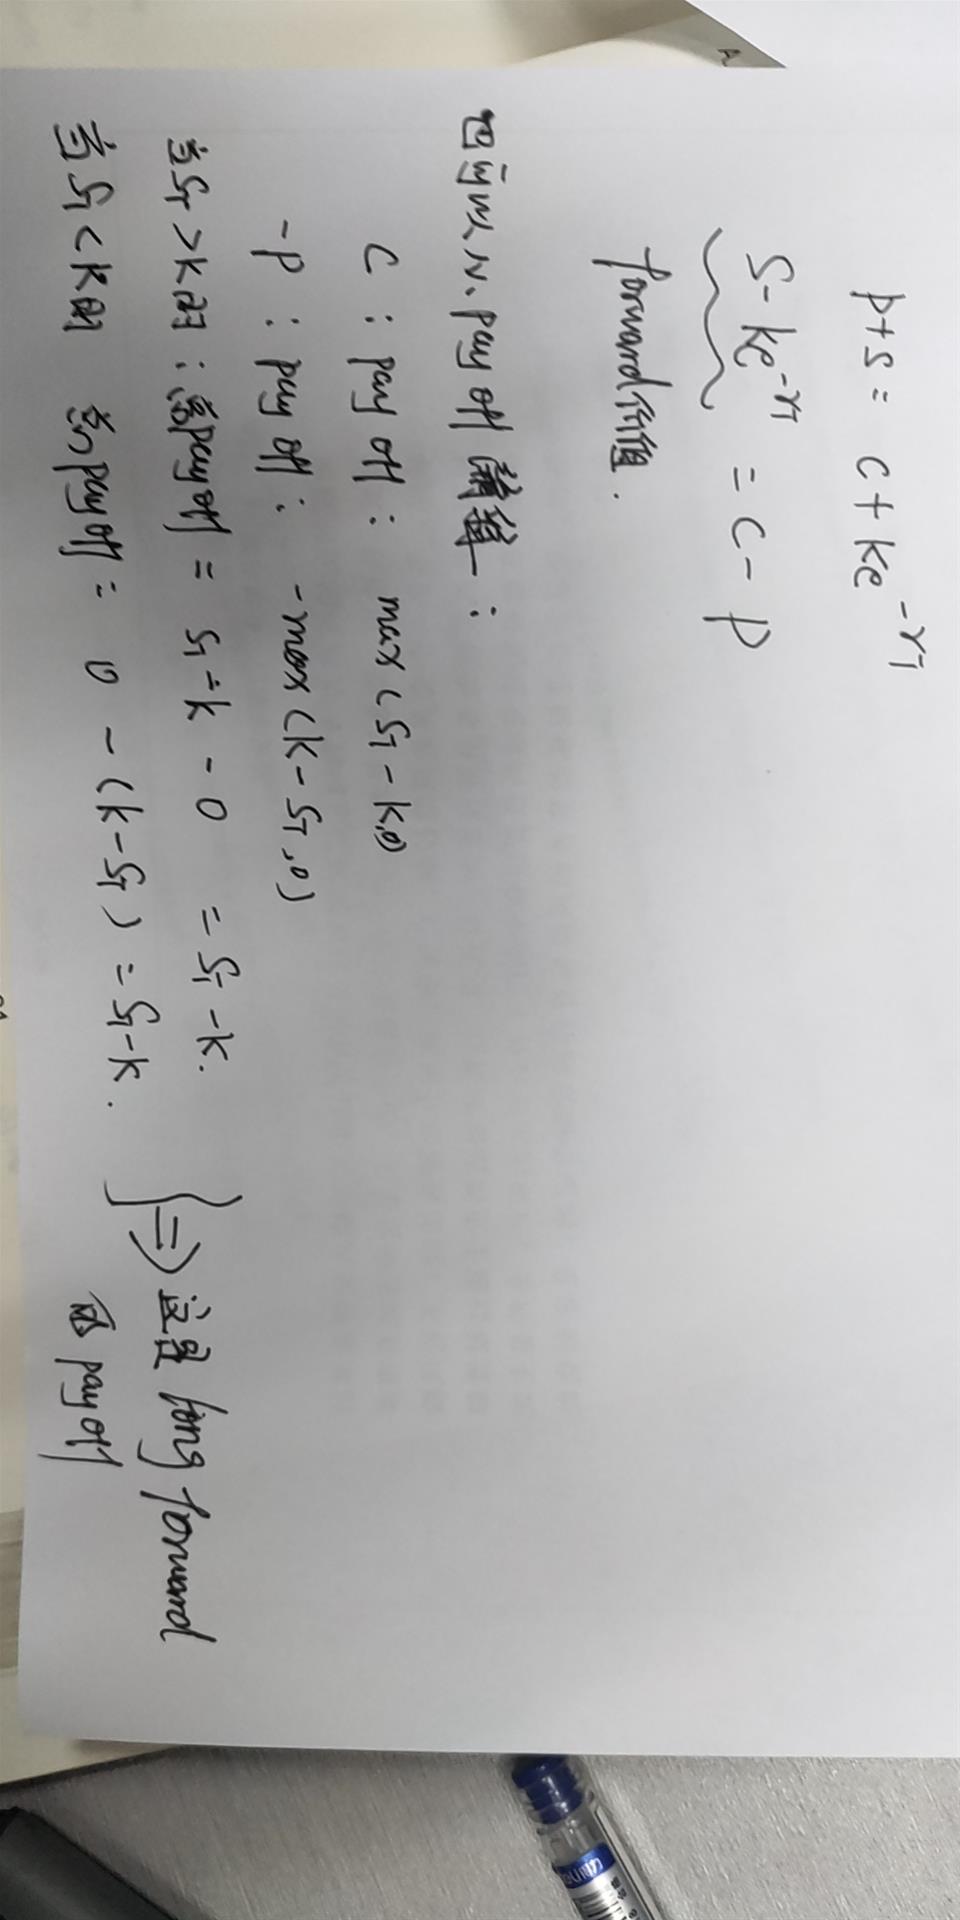 p+S = C+Ke^{-rT}
S-Ke^{-rT} = C-P
forward价值.
也可以从payoff 清算:
C: payoff: max(S_T-K,0)
-P: payoff: -max(K-S_T,0)
当S_T>K时: 总payoff = S_T-K - 0 = S_T-K.
当S_T<K时 总payoff = 0 - (K-S_T) = S_T-K.
} ⇒ 这是 long forward
的 payoff